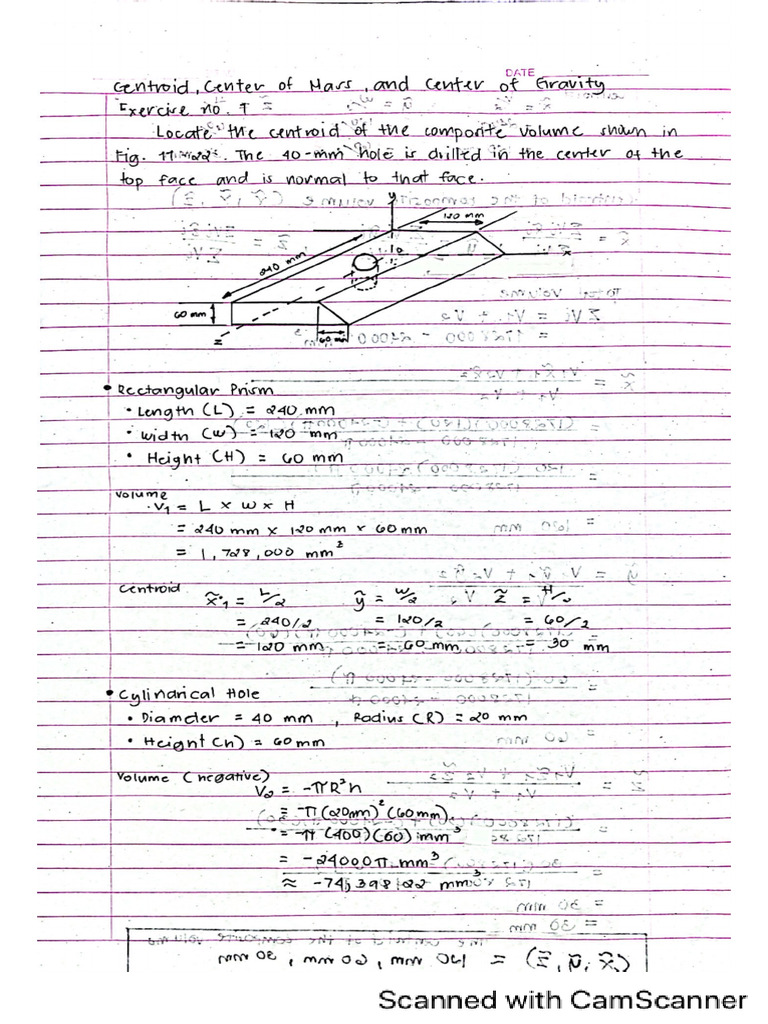 DATE
Centroid, Center of Mass, and Center of Gravity
Exercise no. 7
Locate the centroid of the composite volume shown in
Fig. 11.22. The 40-mm hole is drilled in the center of the
top face and is normal to that face.
y
120 mm
240 mm
x
60 mm
z
60 mm
• Rectangular Prism
• Length (L) = 240 mm
• Width (W) = 120 mm
• Height (H) = 60 mm
Volume
V1 = L x W x H
= 240 mm x 120 mm x 60 mm
= 1,728,000 mm²
Centroid
x̃1 = L/2 ỹ = W/2 z̃ = H/2
= 240/2 = 120/2 = 60/2
= 120 mm = 60 mm = 30 mm
• Cylindrical Hole
• Diameter = 40 mm, Radius (R) = 20 mm
• Height (h) = 60 mm
Volume (negative)
V2 = -πR²h
= -π(20mm)²(60mm)
= -π(400)(60) mm³
= -24000π mm³
≈ -74,398.22 mm³
Scanned with CamScanner